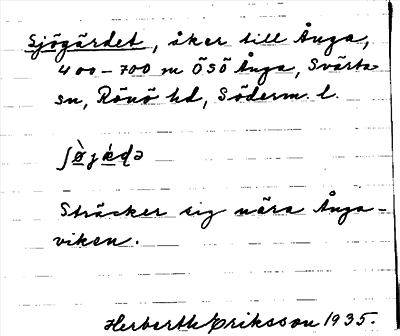 Sjögärdet, åker till Ånga,
400–700 m ÖSÖ Ånga, Svärta
sn, Rönö hd, Söderm. l.
ʃø̀jæ̀ɖə
Sträcker sig nära Ånga-
viken.
Herberth Eriksson 1935.